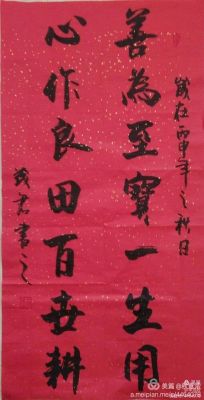 歲在丙申年之秋日
善為至寶一生用
心作良田百世耕
茂君書之
美篇
a.meipian.me